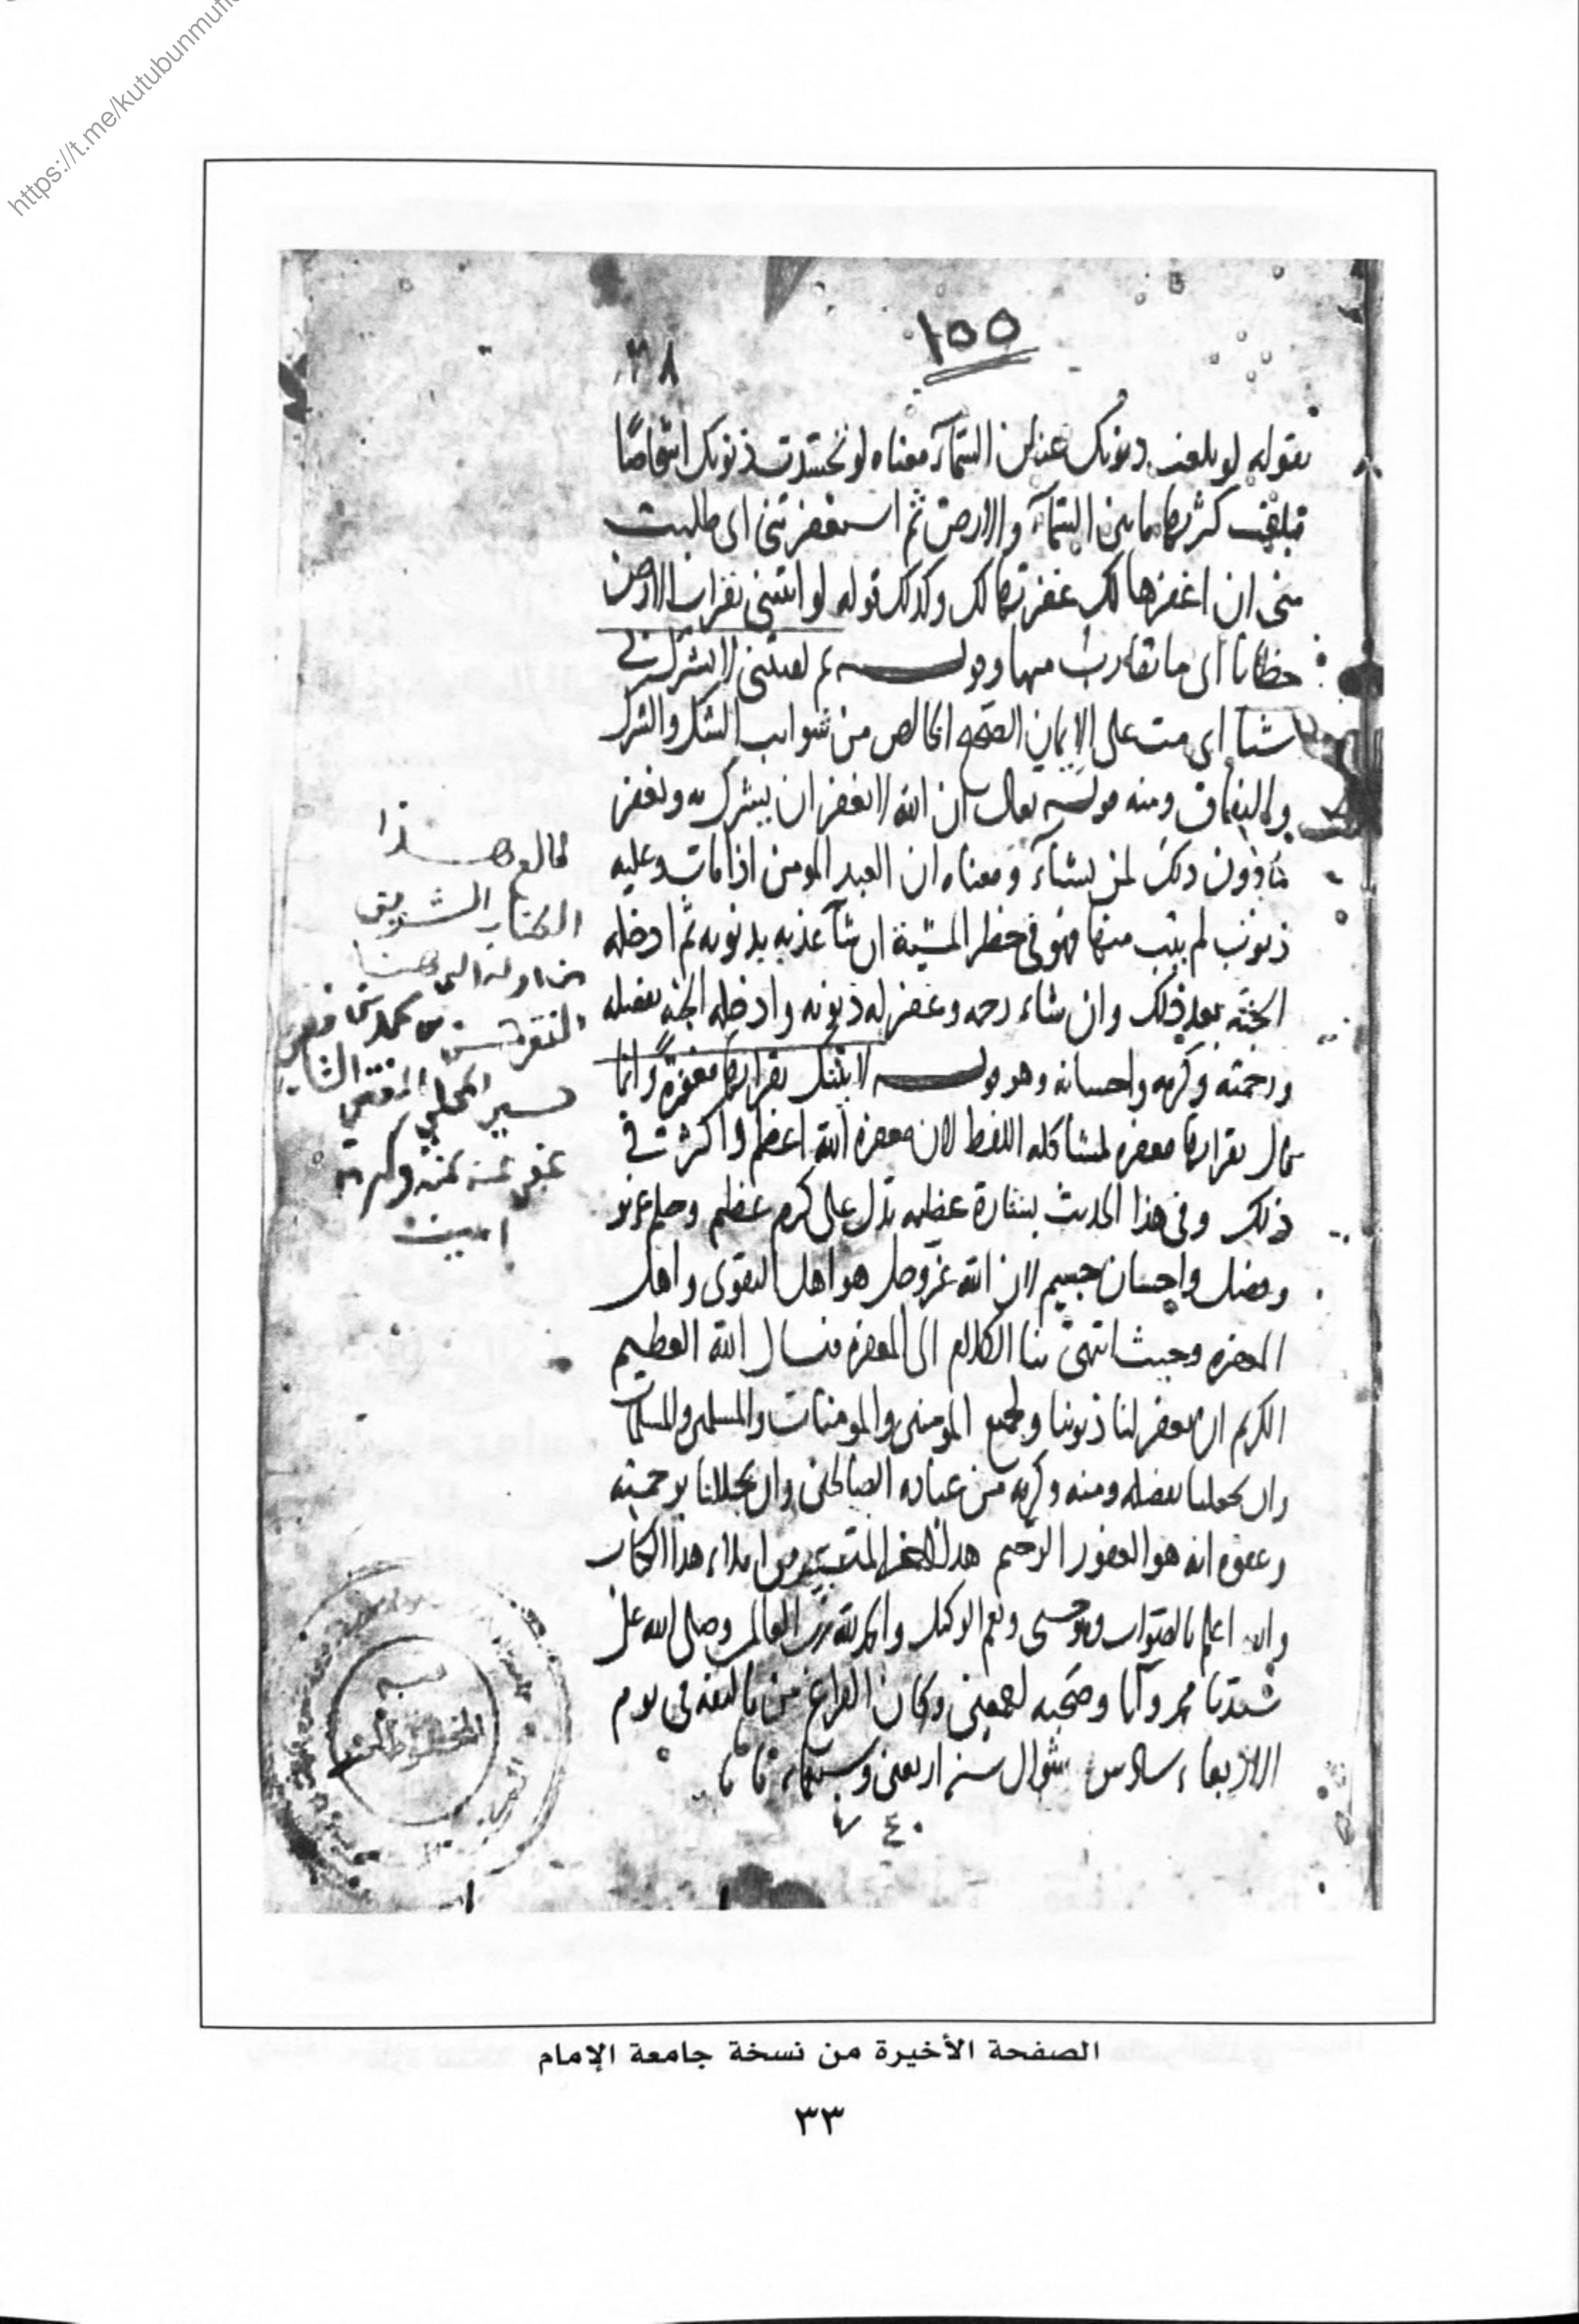 https://t.me/kutubunmufi
١٥٥
٣٨
بقوله لو بلغت ذنوبك عنان السمآء معناه لو تجسدت ذنوبك اشخاصًا
فبلغت كثرتها ما بين السمآء والارض ثم استغفرتني اى طلبت
مني ان اغفرها لك غفرتها لك وكذلك قوله لو اتيتني بقراب الارض
خطايا اى ما تقارب منها وقوله ثم لقيتني لا تشرك بي
شيئا اى مت على الايمان الصحيح الخالص من شوايب الشك والشرك
والنفاق ومنه قوله تعالى ان الله لا يغفر ان يشرك به ويغفر
ما دون ذلك لمن يشآء ومعناه ان العبد المومن اذا مات وعليه
ذنوب لم يتب منها فهو في خطر المشية ان شآ عذبه بذنوبه ثم ادخله
الجنة بعد ذلك وان شاء رحمه وغفر له ذنوبه وادخله الجنة بفضله
ورحمته وكرمه واحسانه وهو قوله لاتيتك بقرابها مغفرةً وانما
قال بقرابها مغفرة لمشاكلة اللفظ لان مغفرة الله اعظم واكثر
ذلك وفي هذا الحديث بشارة عظيمة تدل على كرم عظيم وحلم عزيز
وفضل واحسان جسيم لان الله عز وجل هو اهل التقوى واهل
المغفرة وحيث انتهى بنا الكلام الى المغفرة فنسال الله العظيم
الكريم ان يغفر لنا ذنوبنا ولجميع المومنين والمومنات والمسلمين والمسلمات
وان يجعلنا بفضله ومنه وكرمه من عباده الصالحين وان يجللنا برحمته
وعفوه انه هو الغفور الرحيم هذا اخر المتيسر من املاء هذا الكتاب
والله اعلم بالصواب وهو حسبي ونعم الوكيل والحمد لله رب العالمين وصلى الله على
سيدنا محمد وآله وصحبه اجمعين وكان الفراغ من تاليفه في يوم
الاربعاء سادس شوال سنة اربعين وسبعمائة
٧٤٠
طالع هذا
الكتاب الشريف
من اوله الى هنا
الفقير محمد
الشافعي
المحلي
عفى عنه بمنه وكرمه
امين
قسم
المخطوطات
الصفحة الأخيرة من نسخة جامعة الإمام
٣٣